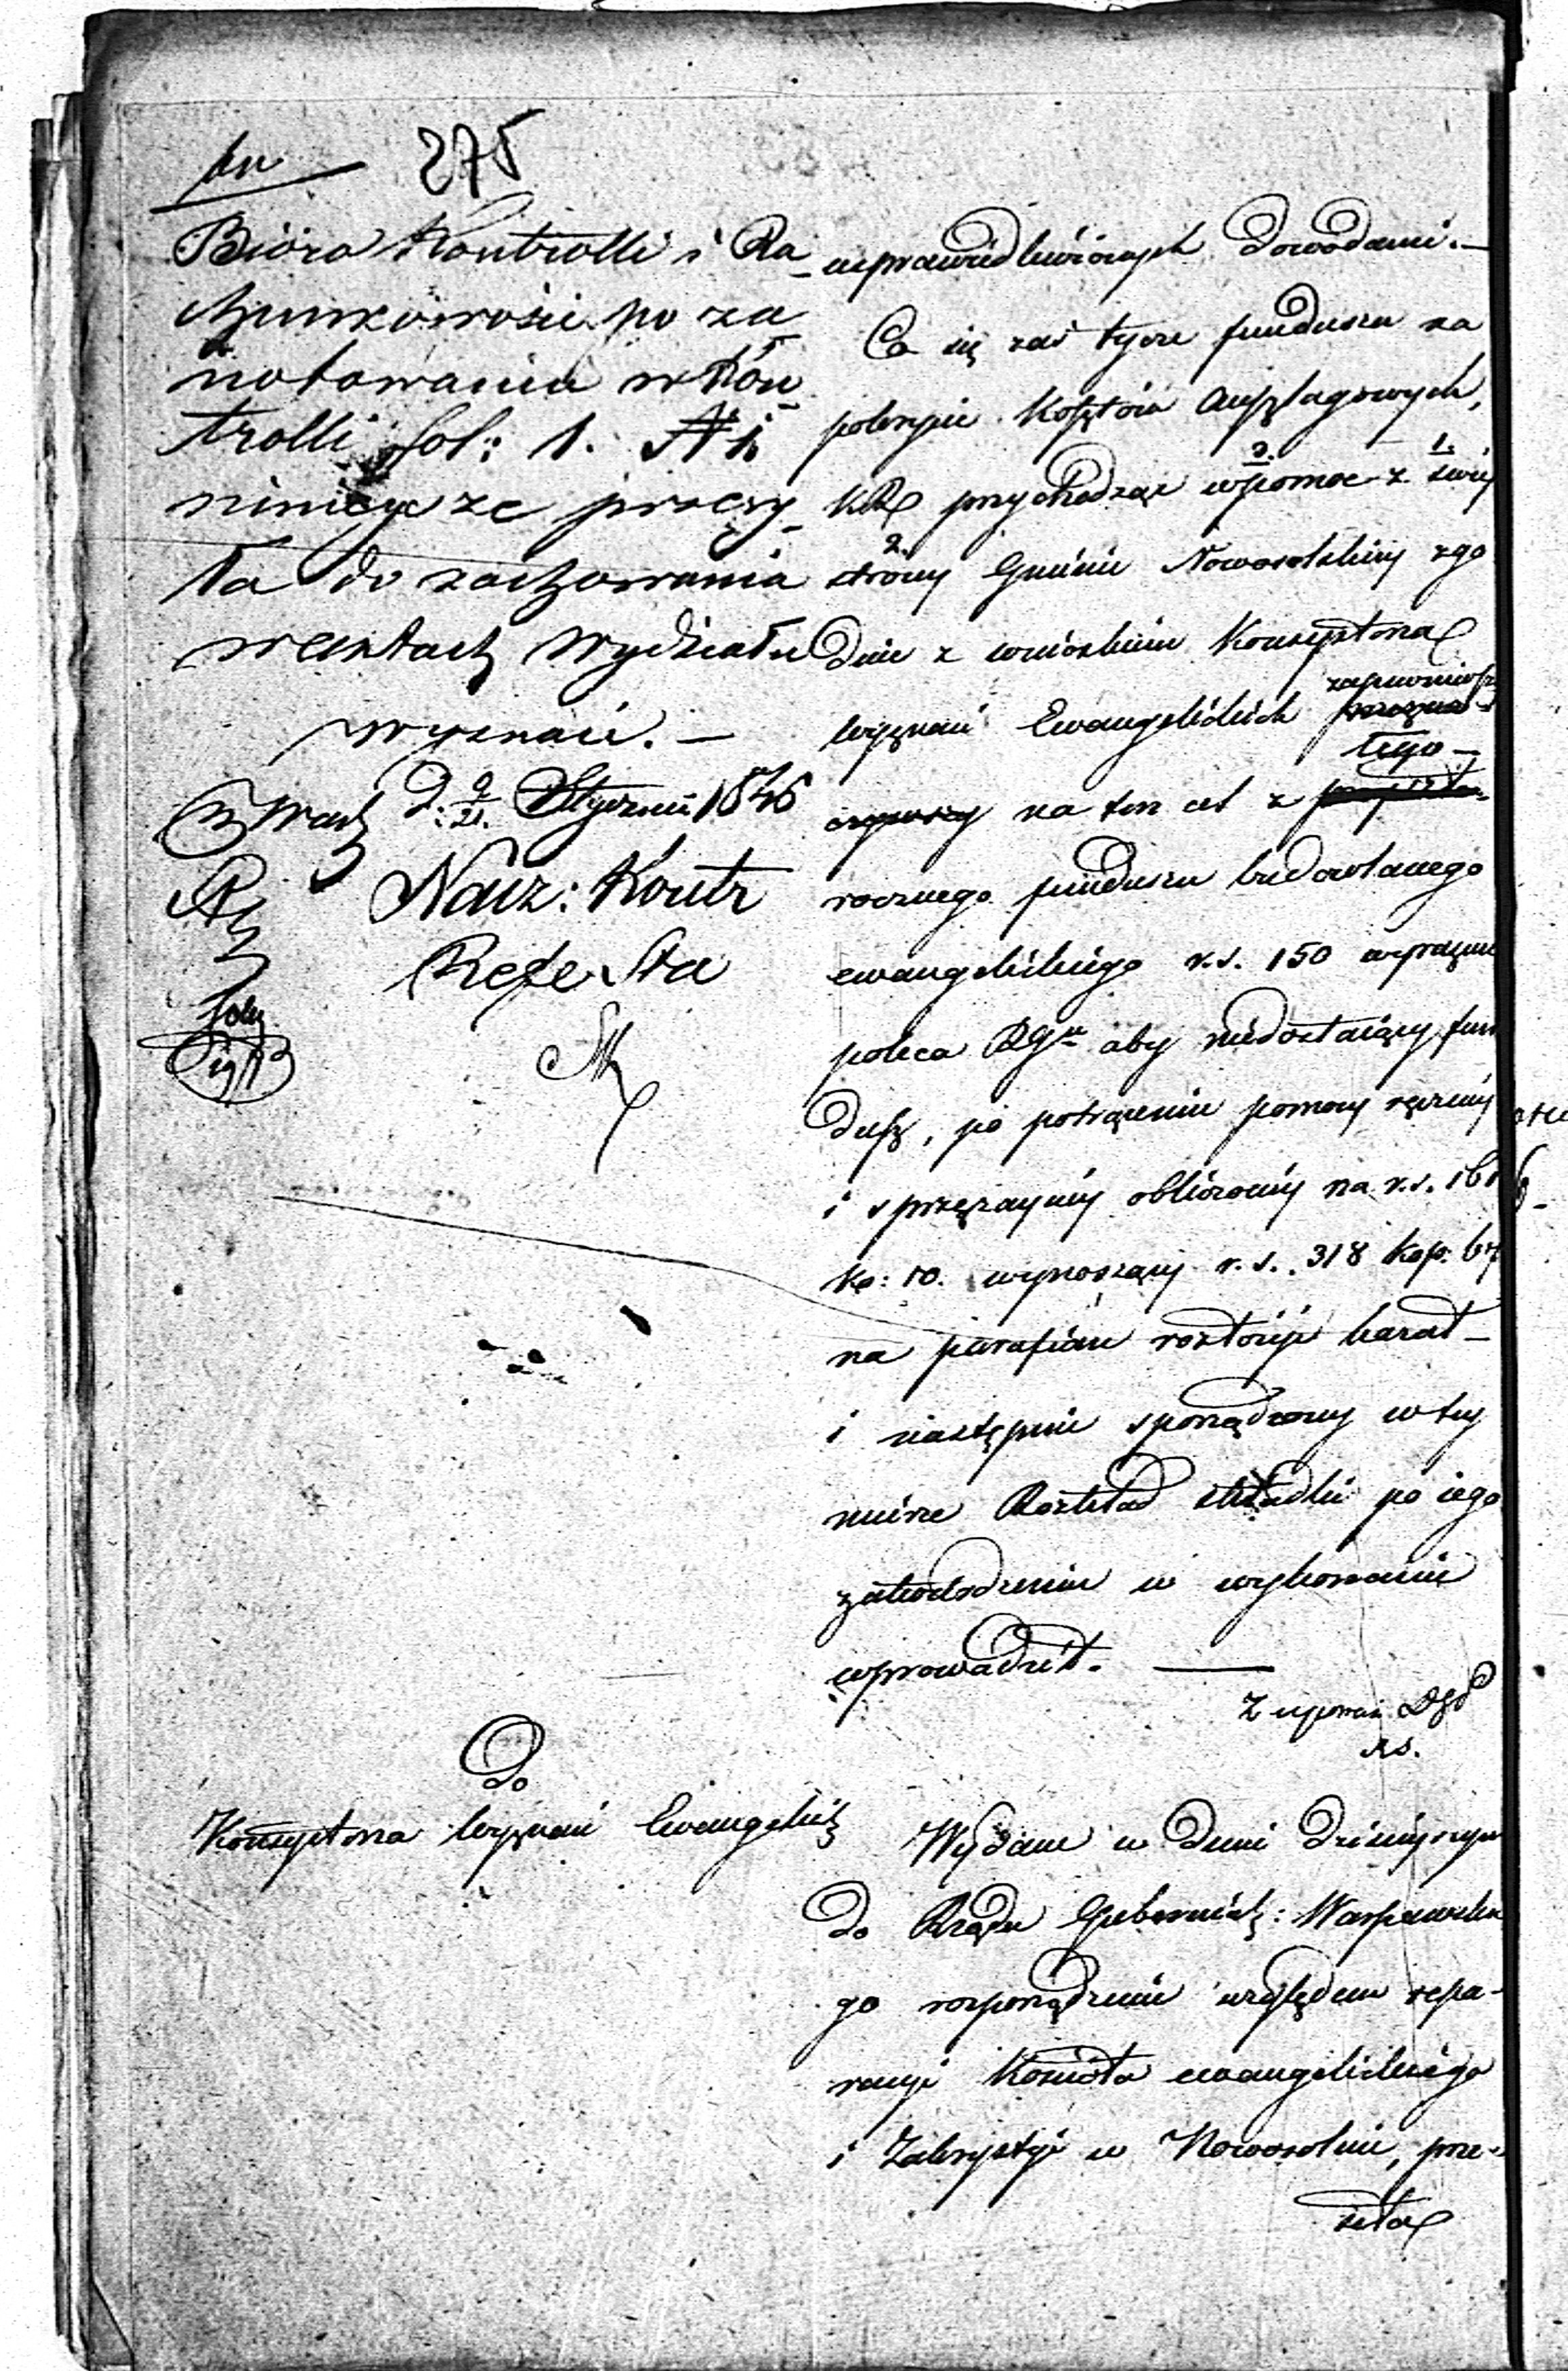 275
Bióra Kontrolli i Ra-
chunkowości po za-
notowaniu w Kon-
trolli fol: 1. № 1
niniejsze przesy-
ła do zachowania
w aktach Wydziału
wyznań. —
W Warsz d. 9/21 Stycznia 1846
Nacz: Kontr
usprawiedliwionych dowodami. —
Co się zaś tycze funduszu na
pokrycie kosztów anszlagowych,
KR przychodząc w pomoc z swéj
2. 1.
strony Gminie Nowosolskiéj zgo
2.
dnie z wnioskiem Konsystorza
wyznań Ewangelickich
tego-
na ten cel z
rocznego funduszu budowlanego
ewangelickiego r.s. 150
poleca RGu aby niedostający fun
dusz, po potrąceniu pomocy ręcznéj
i sprzężajnéj obliczonéj na r.s. 161
ko: 10. wynoszący r.s. 318 kop.
na parafian rozłożyć kazał —
i następnie sporządzony w téj
mierze Rozkład składki po iego
zatwierdzeniu w wykonanie
wprowadził. —
Z upoważ.
Do
Konsystorza Wyznań Ewangelick
Wydane w dniu dzisiejszym
do Rządu Gubernial: Warszawskie
go rozporządzenie względem repa-
racyi Kościoła ewangelickiego
i Zakrystyi w Nowosolnie, prze-
séła